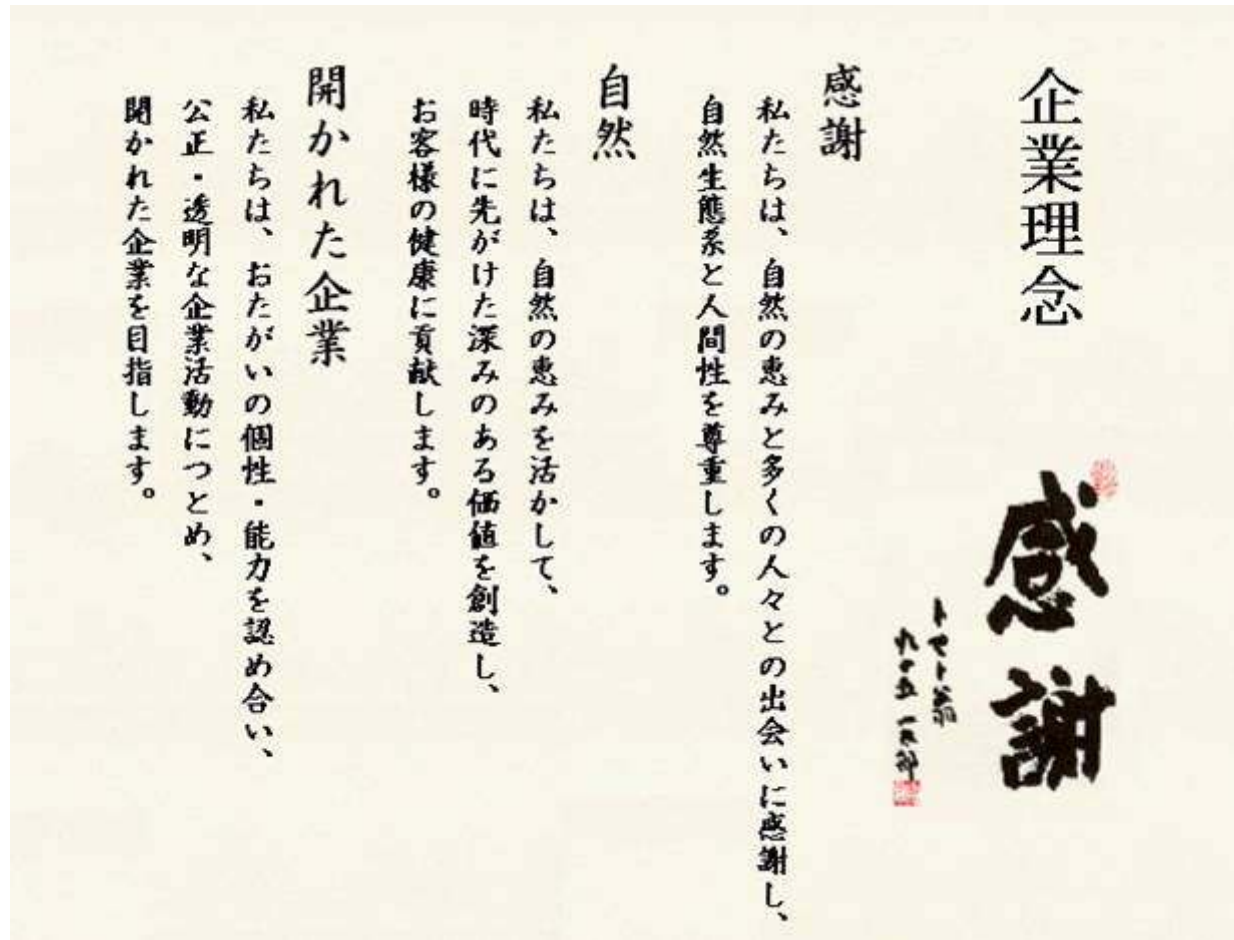 企業理念
感謝
トマト翁
九十五 一太郎
感謝
私たちは、自然の恵みと多くの人々との出会いに感謝し、
自然生態系と人間性を尊重します。
自然
私たちは、自然の恵みを活かして、
時代に先がけた深みのある価値を創造し、
お客様の健康に貢献します。
開かれた企業
私たちは、おたがいの個性・能力を認め合い、
公正・透明な企業活動につとめ、
開かれた企業を目指します。